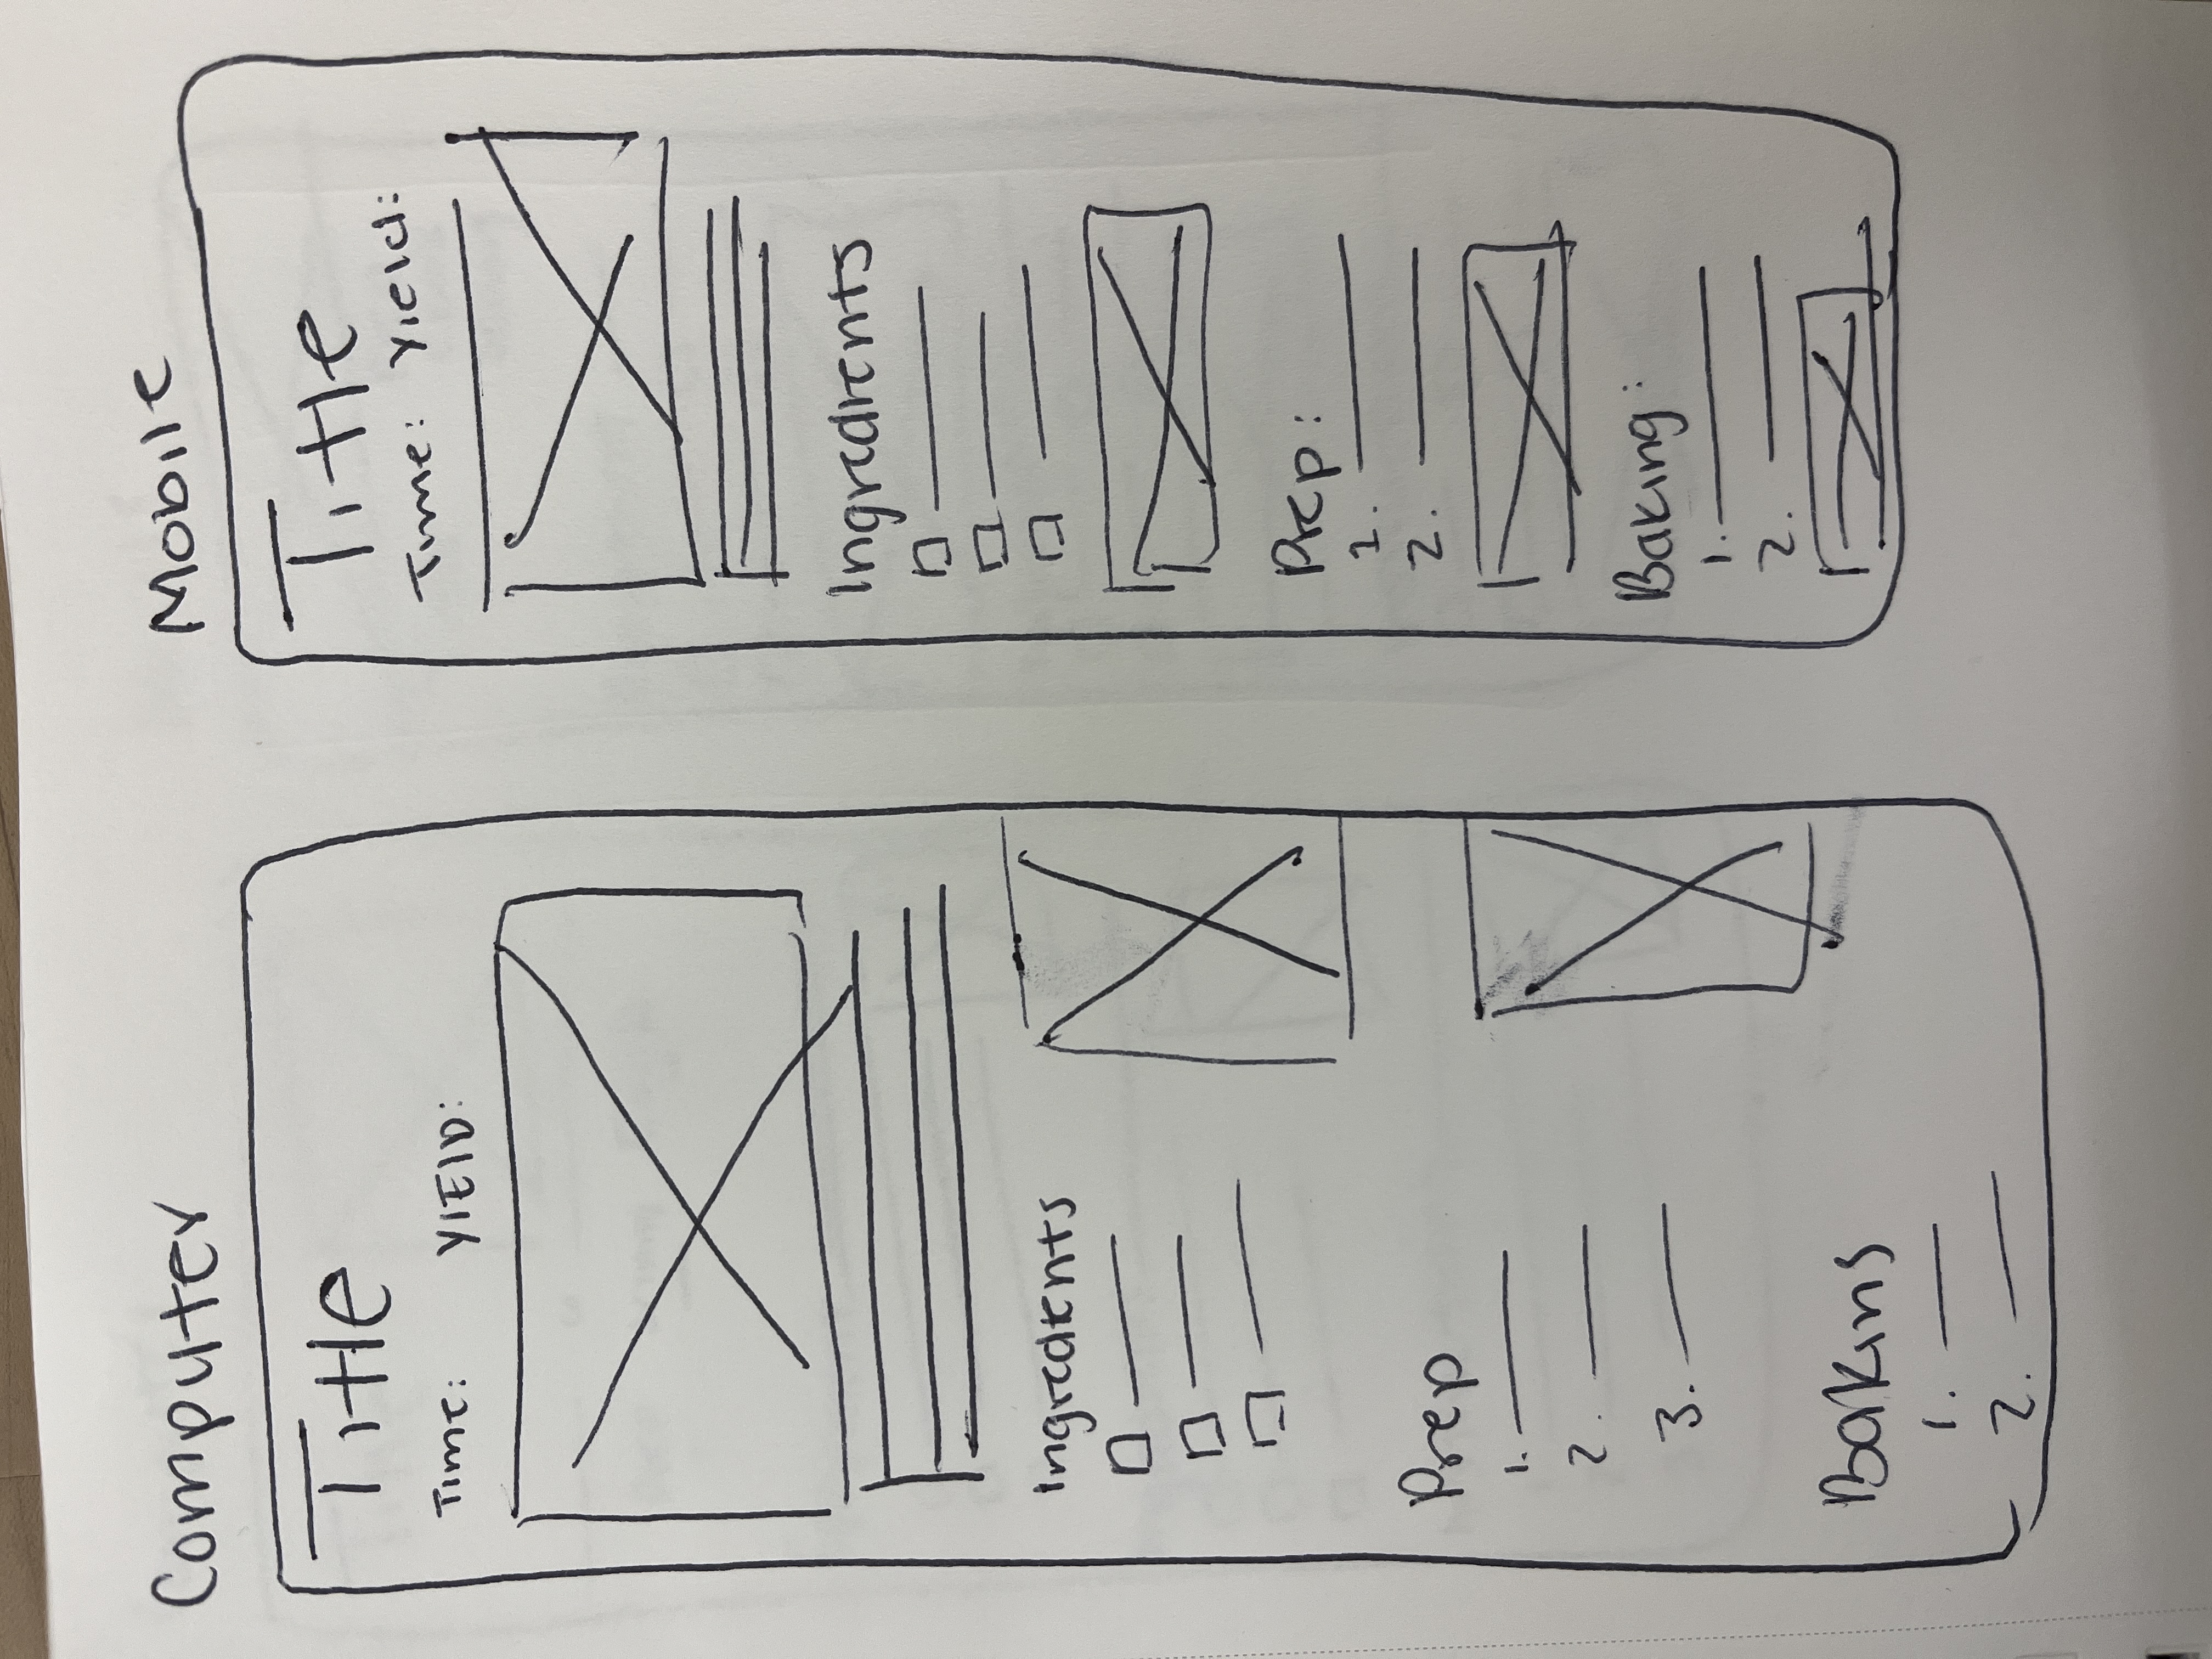 Computer
Title
Time: YIELD:
Ingredients
Prep
1.
2.
3.
Baking
1.
2.
Mobile
Title
Time: Yield:
Ingredients
Prep:
1.
2.
Baking:
1.
2.